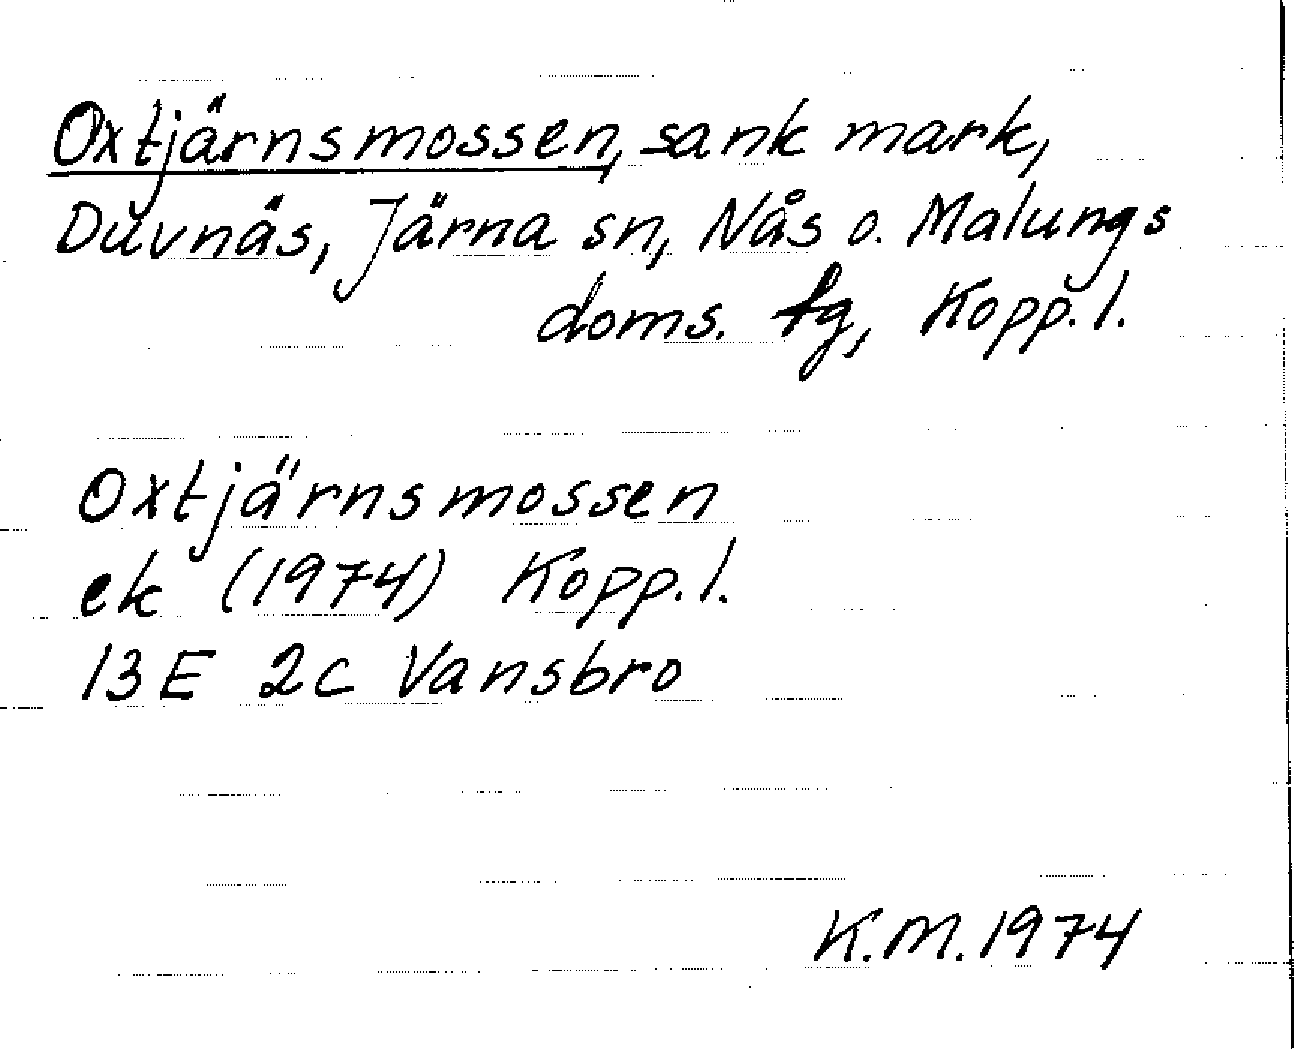 Oxtjärnsmossen, sank mark,
Duvnäs, Järna sn, Nås o. Malungs
doms. tg, Kopp. l.
Oxtjärnsmossen
ek (1974) Kopp. l.
13E 2c Vansbro
K.M. 1974